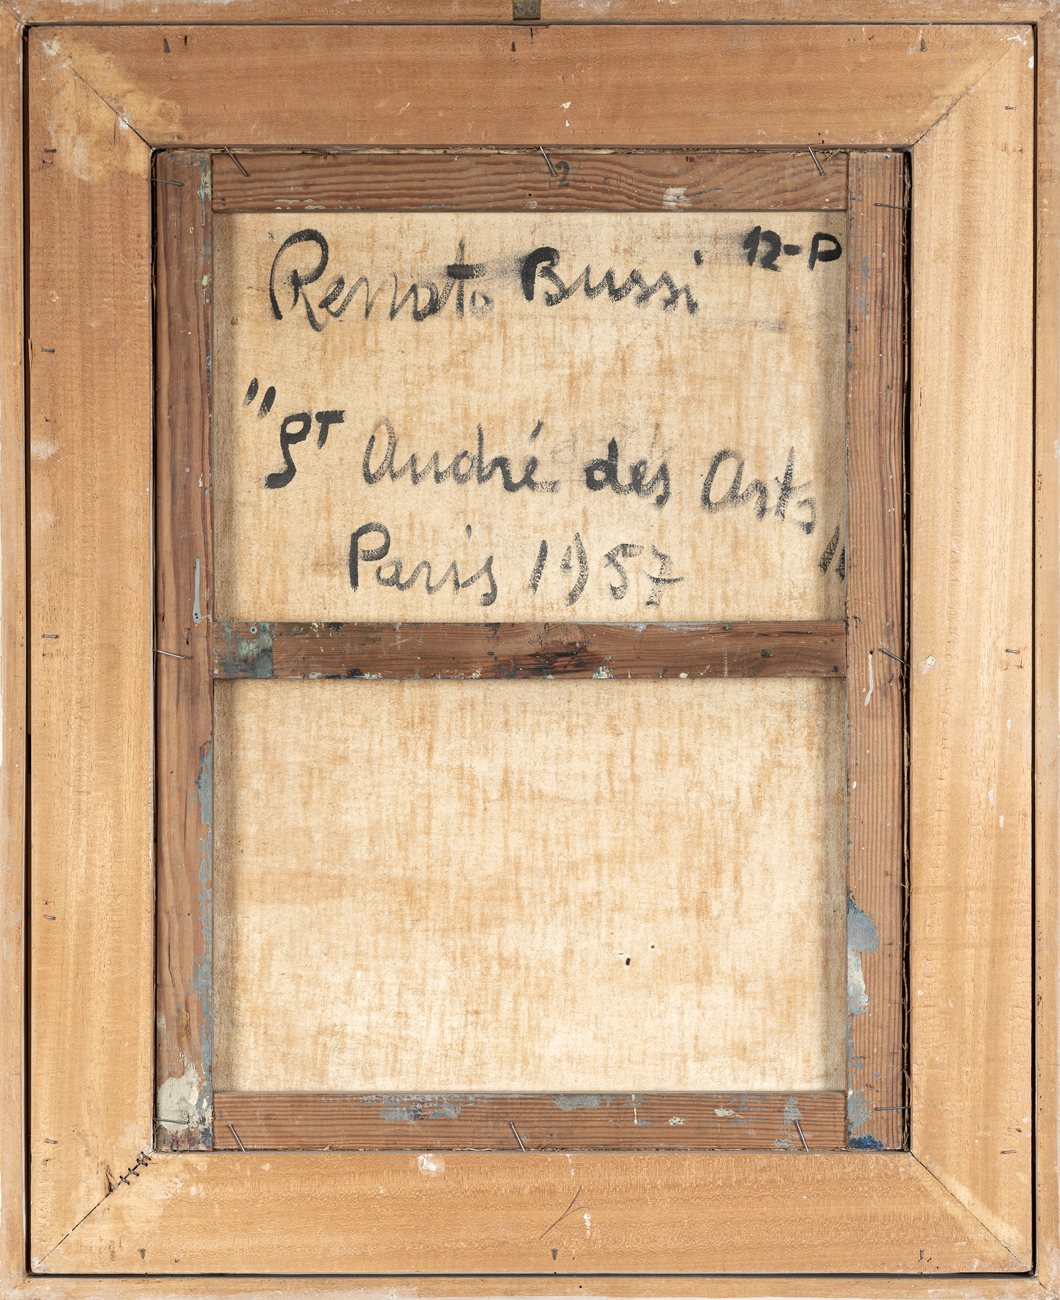 Renato Bussi 12-P
"St André des Arts"
Paris 1957
2